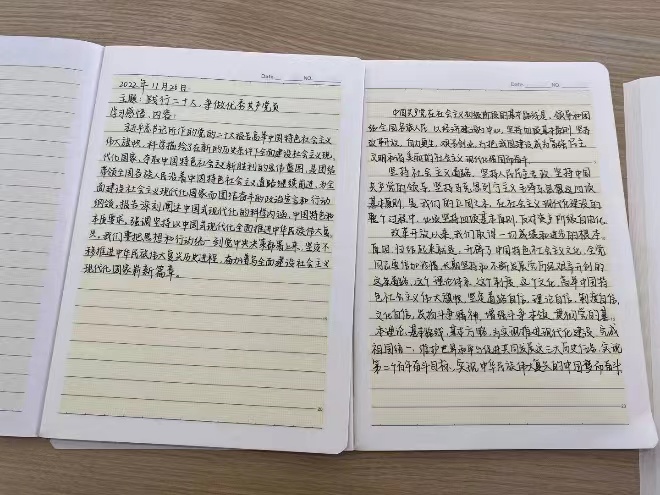 Date. NO.
2022年11月20日
主题：践行二十大，争做优秀共产党员
学习感悟、内容：
习近平总书记所作的党的二十大报告高举中国特色社会主义
伟大旗帜，科学描绘了在新的历史条件下全面建设社会主义现
代化国家、夺取中国特色社会主义新胜利的宏伟蓝图，是团结
带领全国各族人民沿着中国特色社会主义道路继续前进、为全
面建设社会主义现代化国家而团结奋斗的政治宣言和行动
纲领。报告深刻阐述中国式现代化的科学内涵、中国特色和
本质要求，强调坚持以中国式现代化全面推进中华民族伟大复
兴。我们要把思想和行动统一到党中央决策部署上来，坚定不
移推进中华民族伟大复兴历史进程，奋力谱写全面建设社会主义
现代化国家崭新篇章。
Date. NO.
中国共产党在社会主义初级阶段的基本路线是：领导和团
结全国各族人民，以经济建设为中心，坚持四项基本原则，坚持
改革开放，自力更生，艰苦创业，为把我国建设成为富强民主
文明和谐美丽的社会主义现代化强国而奋斗。
坚持社会主义道路、坚持人民民主专政、坚持中国
共产党的领导、坚持马克思列宁主义毛泽东思想这四项
基本原则，是我们的立国之本。在社会主义现代化建设的
整个过程中，必须坚持四项基本原则，反对资产阶级自由化。
改革开放以来，我们取得一切成绩和进步的根本
原因，归结起来就是：开辟了中国特色社会主义文化，全党
同志要倍加珍惜、长期坚持和不断发展党历经艰辛开创的
这条道路、这个理论体系、这个制度、这个文化，高举中国特
色社会主义伟大旗帜，坚定道路自信、理论自信、制度自信、
文化自信，发扬斗争精神，增强斗争本领，我们党的基
本理论、基本路线、基本方略，为实现推进现代化建设、完成
祖国统一、维护世界和平与促进共同发展这三大历史任务，实现
第二个百年奋斗目标、实现中华民族伟大复兴的中国梦而奋斗